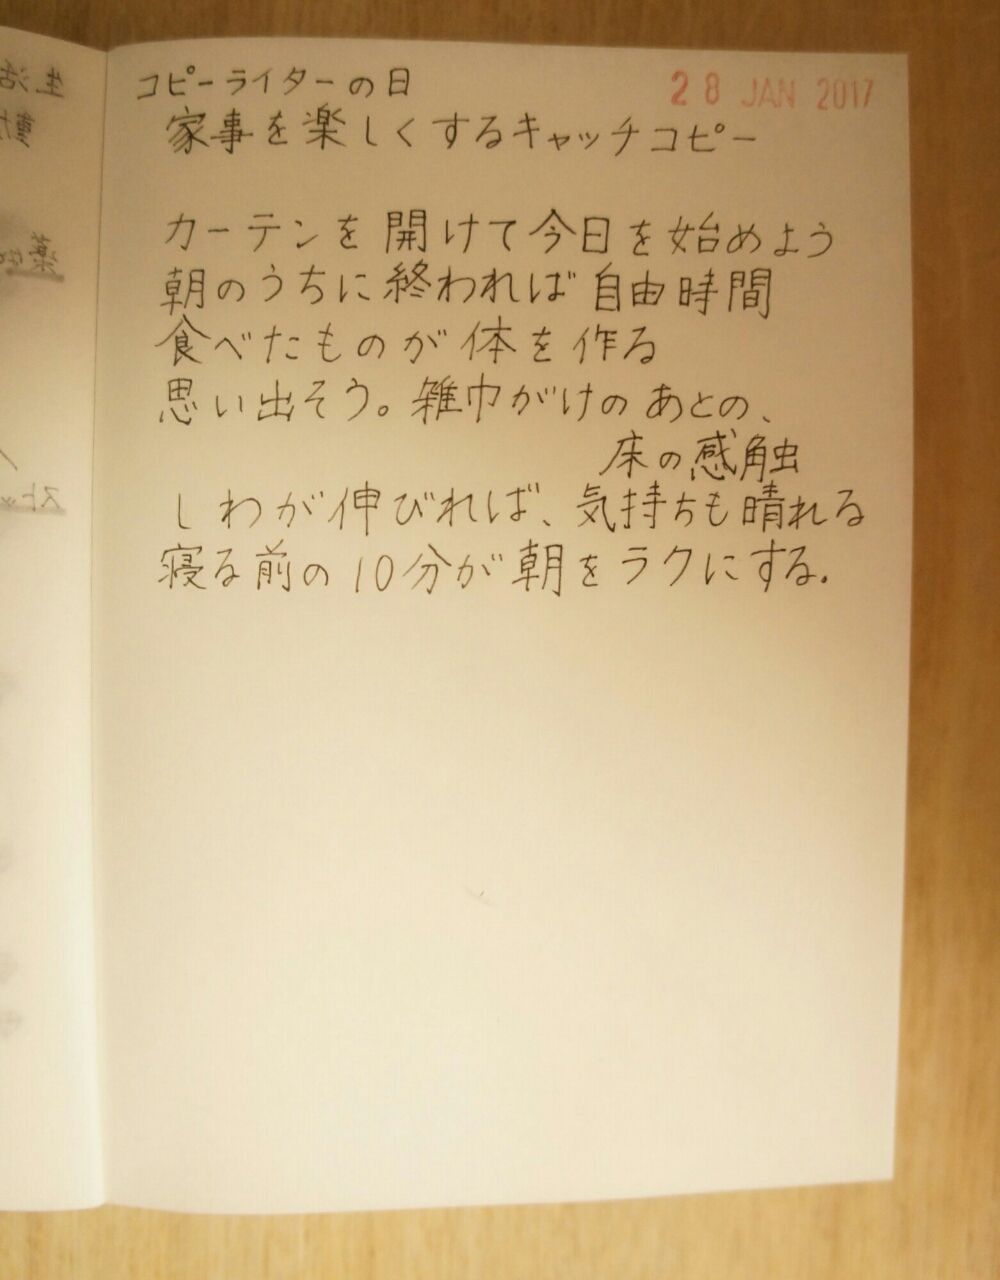 コピーライターの日
28 JAN 2017
家事を楽しくするキャッチコピー
カーテンを開けて今日を始めよう
朝のうちに終われば自由時間
食べたものが体を作る
思い出そう。雑巾がけのあとの、
床の感触
しわが伸びれば、気持ちも晴れる
寝る前の10分が朝をラクにする.
生活
薬な
スト